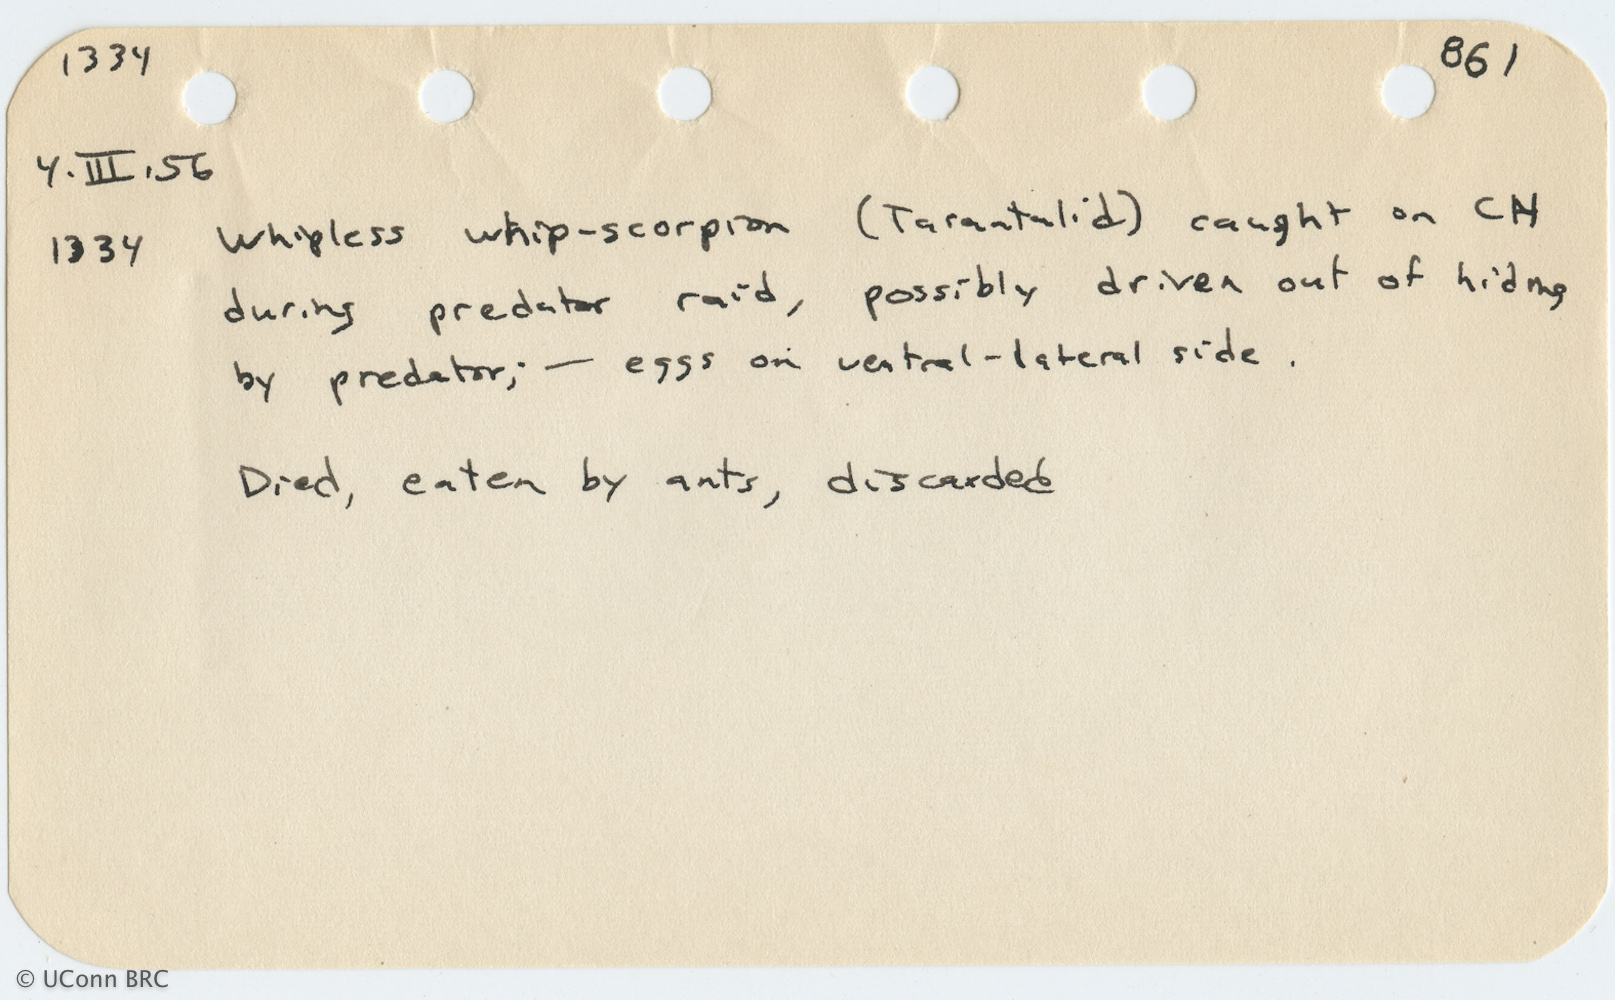 1334
861
4.III.56
1334 Whipless whip-scorpion (Tarantulid) caught on CN
during predator raid, possibly driven out of hiding
by predator; — eggs on ventral-lateral side.
Died, eaten by ants, discarded
© UConn BRC